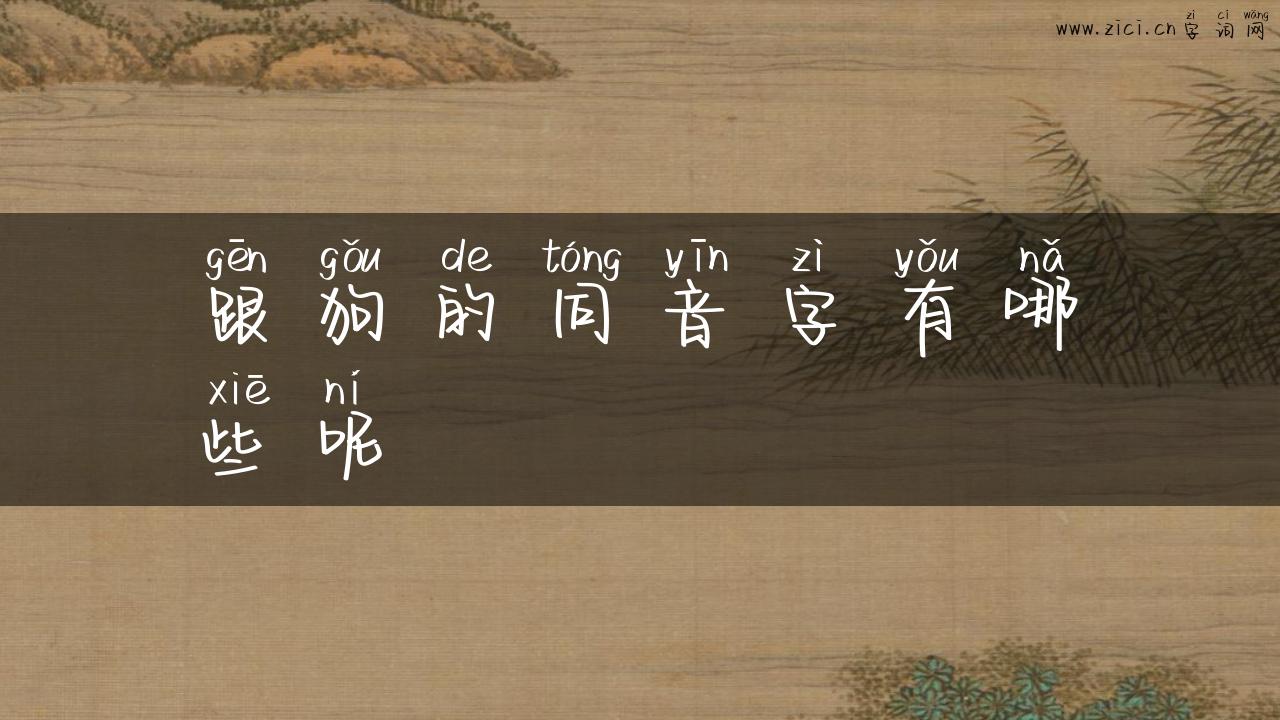 zì cí wǎng
www.zici.cn 字 词 网
gēn gǒu de tóng yīn zì yǒu nǎ
跟 狗 的 同 音 字 有 哪
xiē ní
些 呢